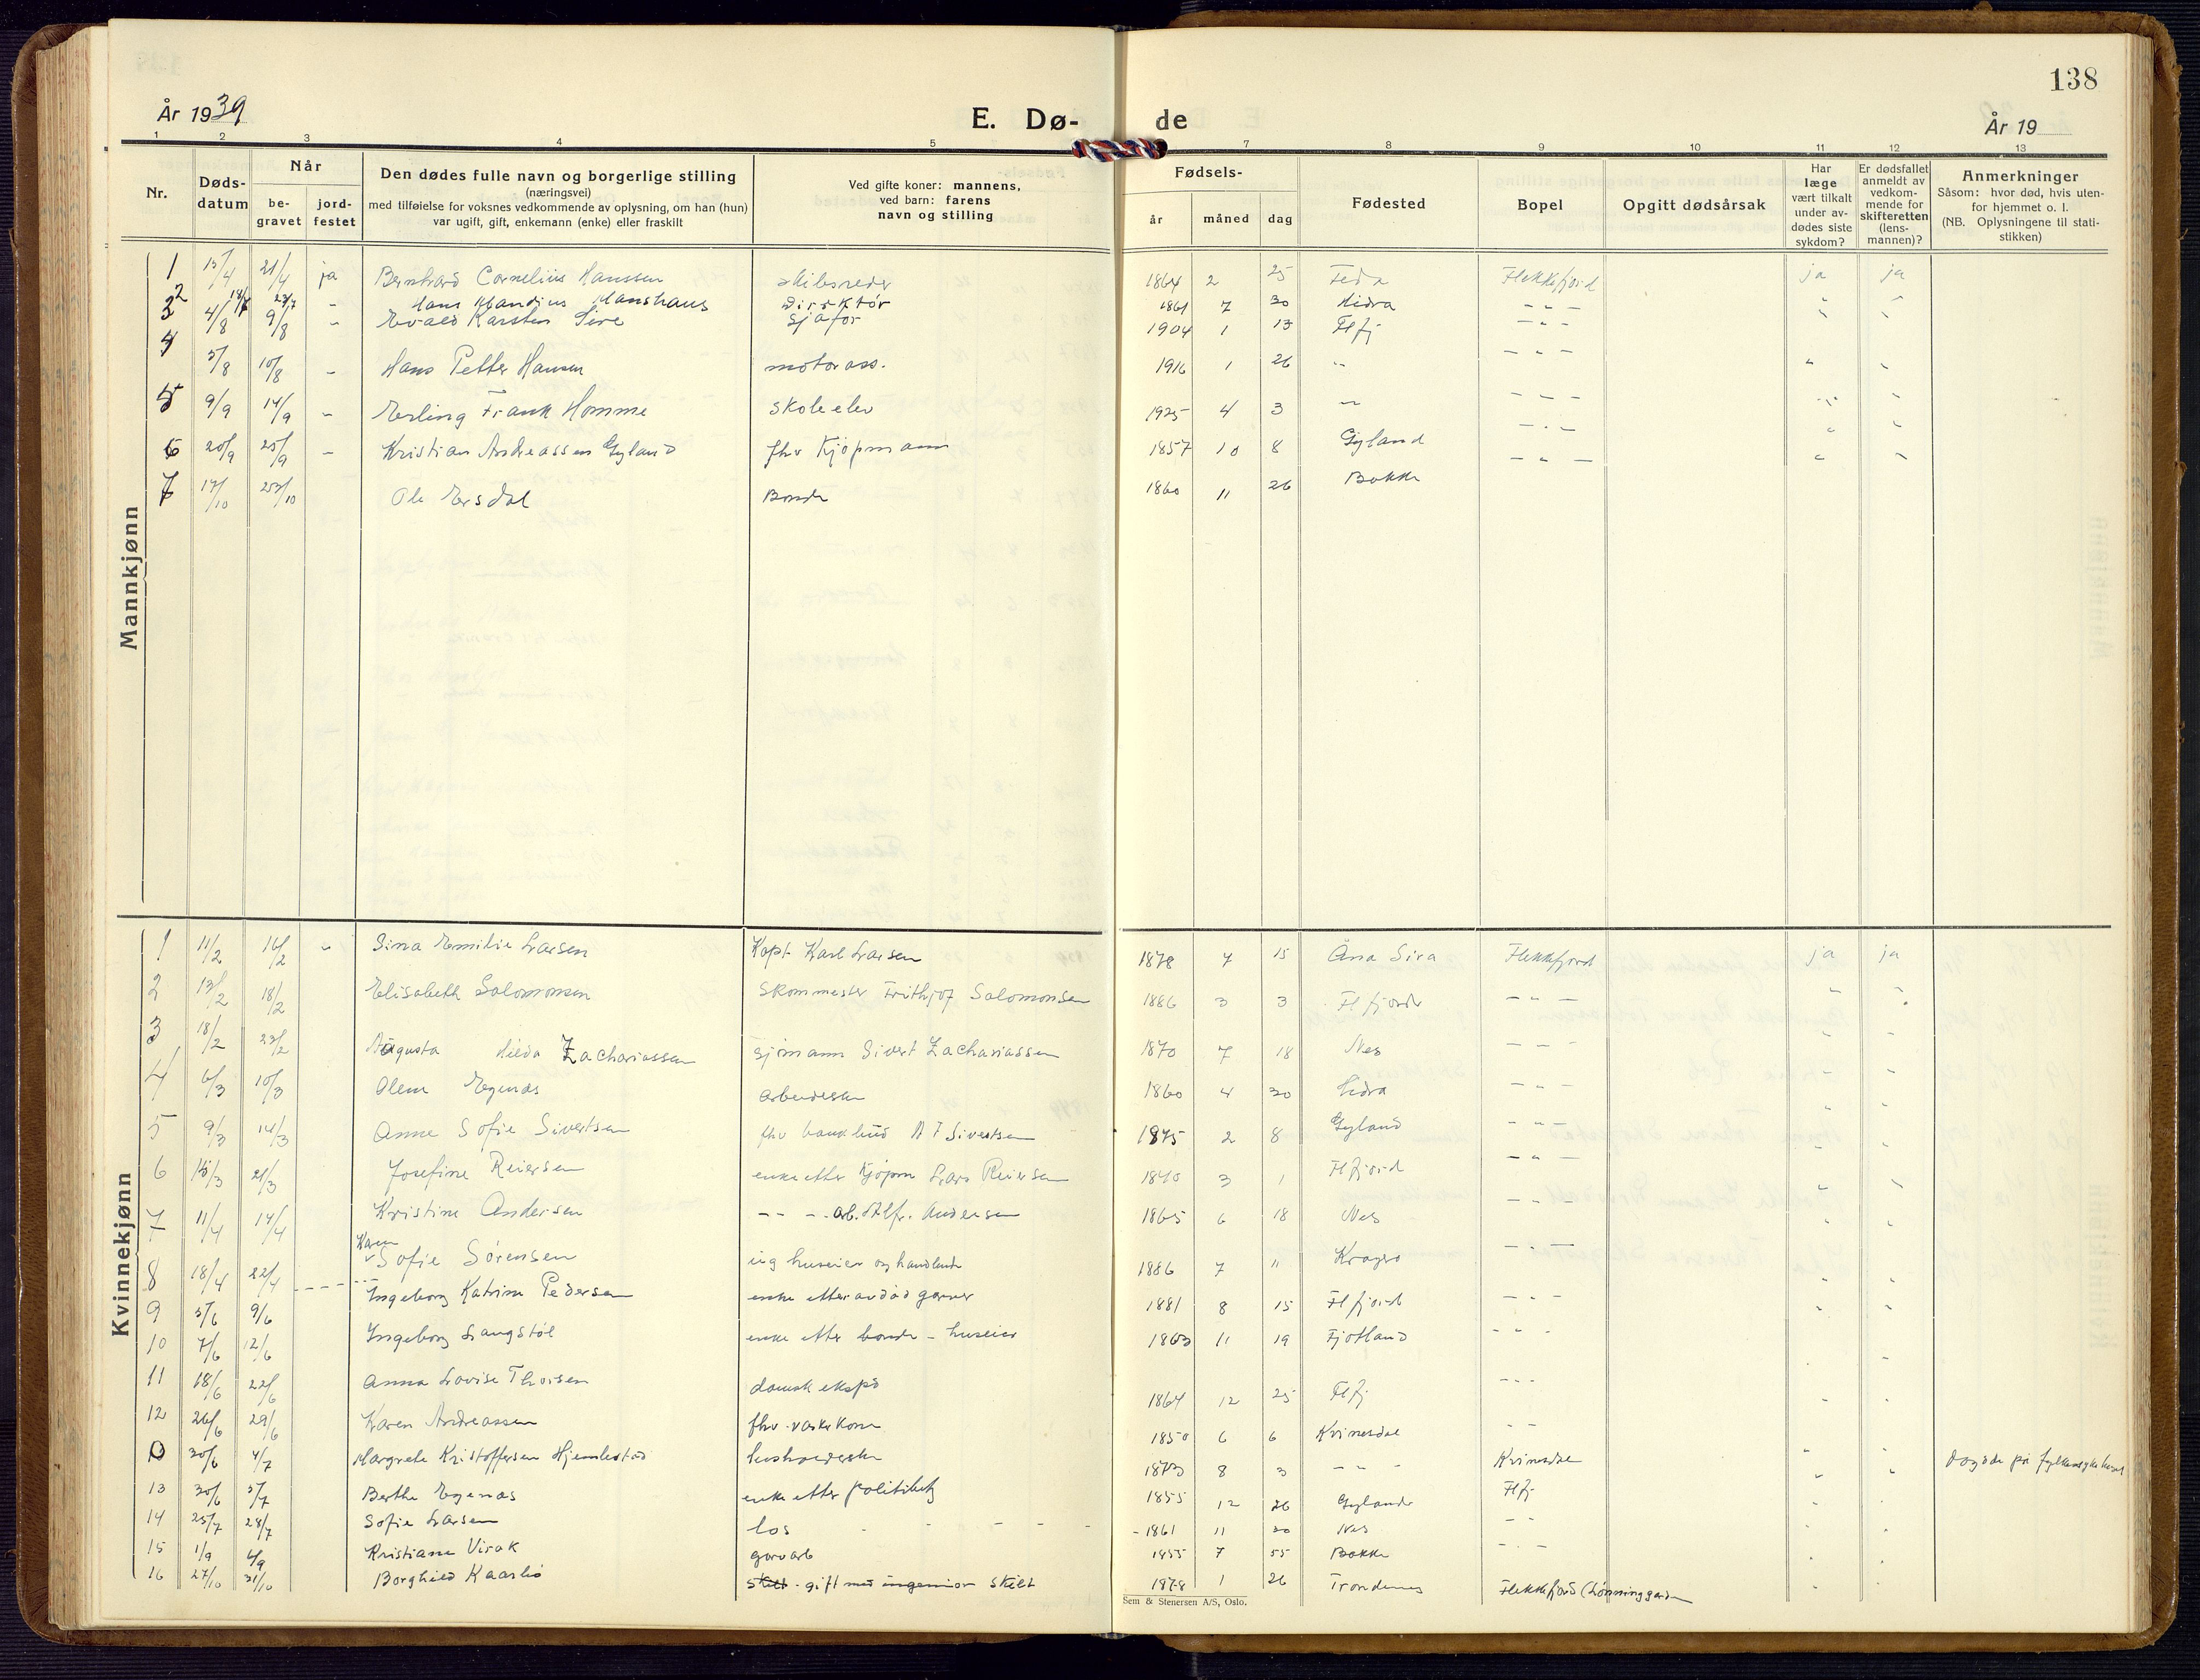 138
År 1939
E. Dø-
de
År 19
1 2 3 4 5 7 8 9 10 11 12 13
Nr.
Døds-
datum
Når
be-
gravet
jord-
festet
Den dødes fulle navn og borgerlige stilling
(næringsvei)
med tilføielse for voksnes vedkommende av oplysning, om han (hun)
var ugift, gift, enkemann (enke) eller fraskilt
Ved gifte koner: mannens,
ved barn: farens
navn og stilling
Fødsels-
år måned dag
Fødested
Bopel
Opgitt dødsårsak
Har
læge
vært tilkalt
under av-
dødes siste
sykdom?
Er dødsfallet
anmeldt av
vedkom-
mende for
skifteretten
(lens-
mannen)?
Anmerkninger
Såsom: hvor død, hvis uten-
for hjemmet o. l.
(NB. Oplysningene til stati-
stikken)
Mannkjønn
1 15/4 21/4 ja Bernhard Cornelius Hanssen skibsreder 1864 2 25 Feda Flekkefjord ja ja
2 23/7 - Hans Mandius Hanshaus Direktør 1861 7 30 Hidra - " - " "
3 4/8 9/8 - Evald Karsten Sire Sjåfør 1904 1 13 Flfj - " - " "
4 5/8 10/8 - Hans Petter Hansen motorass. 1916 1 26 " - " - " "
5 9/9 14/9 - Erling Frank Homme Skoleelev 1925 4 3 " - " - " "
6 20/9 25/9 - Kristian Andreassen Gyland fhv Kjøpmann 1857 10 8 Gyland - " - " "
7 17/10 23/10 Ole Ersdal Bonde 1860 11 26 Bakke - " - " "
Kvinnekjønn
1 11/2 16/2 " Sina Emilie Larsen Kapt Karl Larsen 1878 7 15 Åna Sira Flekkefjord ja ja
2 13/2 18/2 Elisabeth Salomonsen Skommester Frithjof Salomonsen 1886 3 3 Flfjord - " - " "
3 18/2 23/2 Augusta Hilda Zachariassen Sjømann Sivert Zachariassen 1870 7 18 Nes - " - " "
4 6/3 10/3 Olene Egenes arbeiderske 1860 4 30 Hidra - " - " "
5 9/3 14/3 Anne Sofie Sivertsen fhv bankbud A F Sivertsen 1875 2 8 Gyland - " - " "
6 15/3 21/3 Josefine Reiersen enke etter Kjøpm Lars Reiersen 1840 3 1 Flfjord - " - " "
7 11/4 14/4 Kristine Andersen - - - arb. Alfr. Andersen 1865 6 18 Nes - " - " "
Karen
8 18/4 22/4 - - - Sofie Sørensen ug huseier og handlende 1886 7 11 Kragerø - " - " "
9 5/6 9/6 Ingeborg Katrine Pedersen enke etter avdød garver 1881 8 15 Flfjord - " - " "
10 7/6 12/6 Ingeborg Langstøl enke etter bonde - huseier 1863 11 19 Fjotland - " - "
11 18/6 22/6 Anna Lovise Thorsen damsk eksp 1864 12 25 Flfj - " - " "
12 26/6 29/6 Karen Andreassen fhv. vaskekone 1850 6 6 Kvinesdal - " " "
0 30/6 4/7 Margrete Kristoffersen Hjemlestad husholderske 1873 8 3 - " - Kvinesdal " " døde på fylkessykehuset
13 30/6 5/7 Berthe Egenes enke etter politibetj 1855 12 26 Gyland Flfj " "
14 25/7 28/7 Sofie Larsen los - - - - - 1861 11 30 Nes - " " "
15 1/9 4/9 Kristiane Virak garvarb 1855 7 55 Bakke - " - " "
16 27/10 31/10 Borghild Kaarbø skilt - gift med ingeniør skilt 1878 1 26 Trondenes Flekkefjord (Lønninggarden " "
Sem & Stenersen A/S, Oslo.